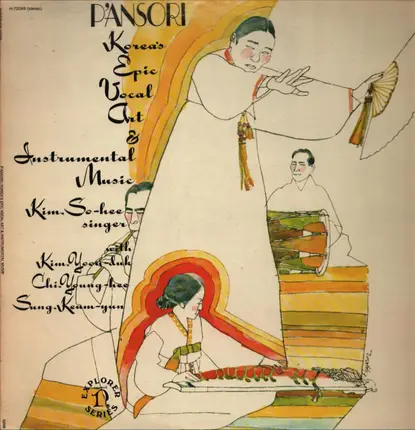 H-72049 (stereo)
P'ANSORI
Korea's
Epic
Vocal
Art
&
Instrumental
Music
Kim So-hee
singer
with
Kim Yoon-duk
Chi Young-hee
Sung Keum-yun
EXPLORER
SERIES